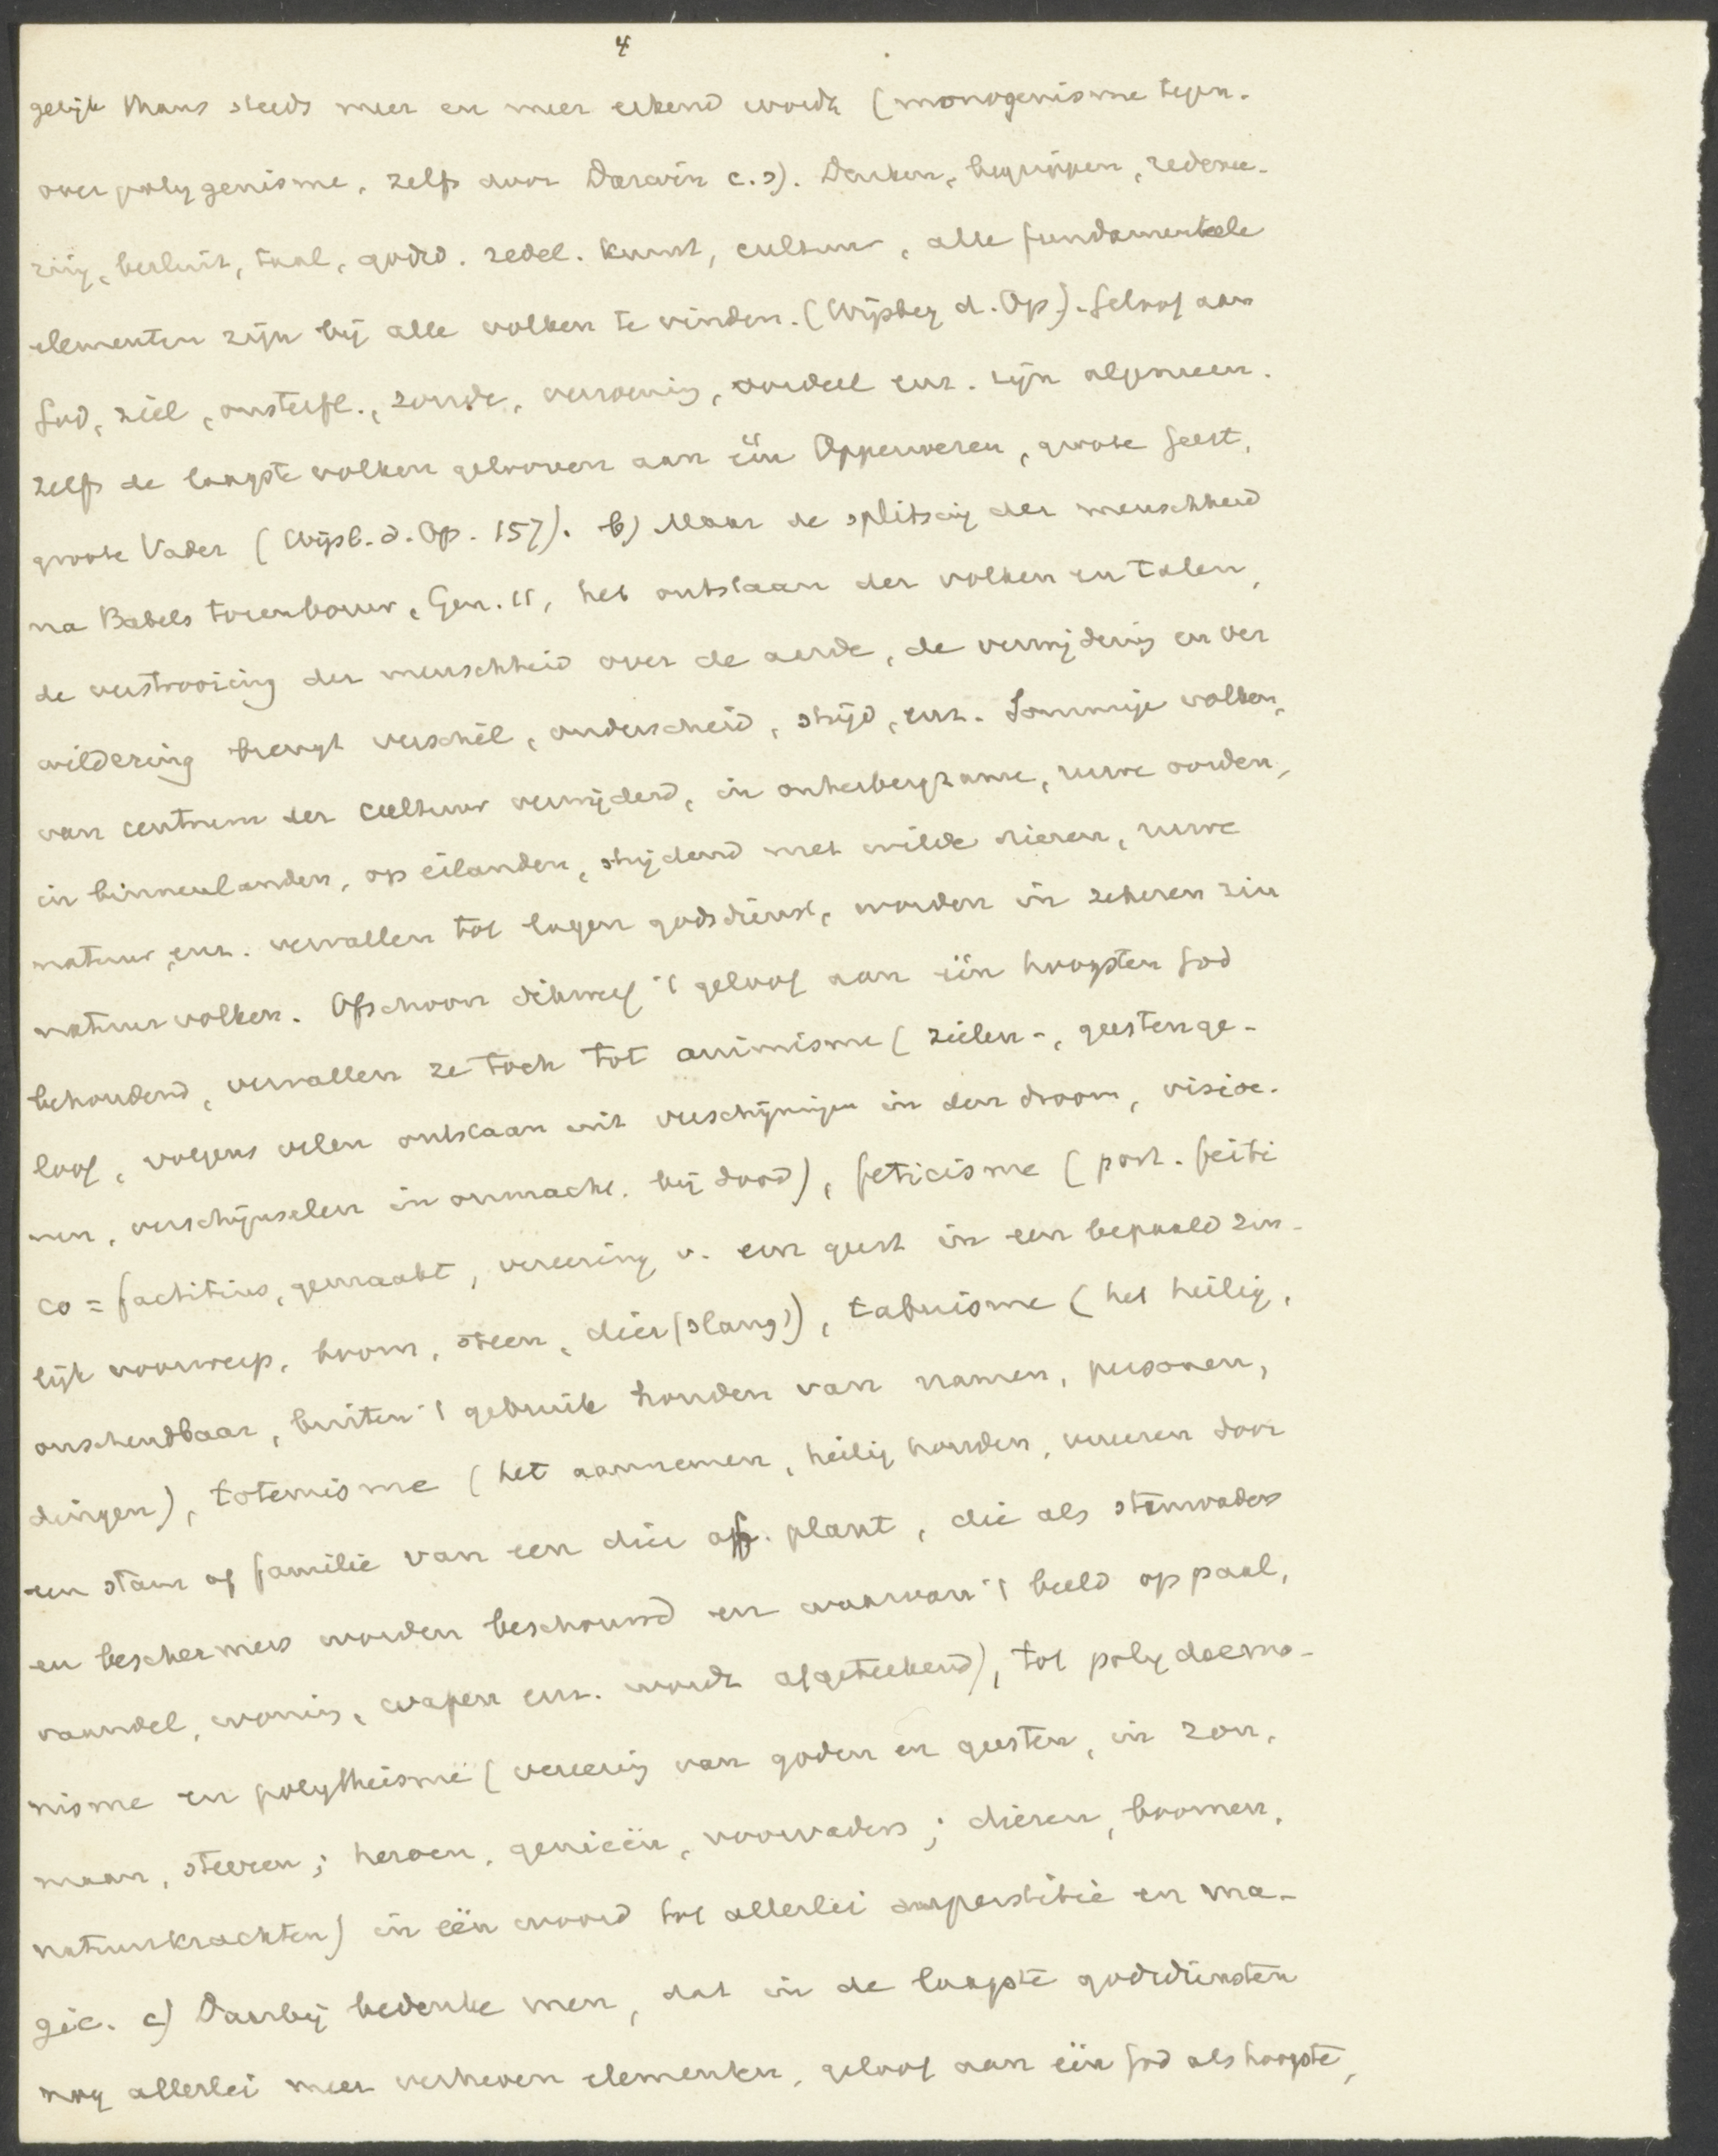 4
gelijk thans steeds meer en meer erkend wordt (monogenisme tegen-
over polygenisme, zelfs door Darwin c.s). Denken, begrippen, redenee-
ring, besluit, taal, godsd. zedel. kunst, cultuur, alle fundamenteele
elementen zijn bij alle volken te vinden. (Wijsbeg d. Op). Geloof aan
God, ziel, onsterfl., zonde, verzoening, oordeel enz. zijn algemeen.
Zelfs de laagste volken gelooven aan één Opperwezen, groote Geest,
groote Vader (Wijsb. d. Op. 157). b) Maar de splitsing der menschheid
na Babels torenbouw, Gen. 11, het ontstaan der volken en talen,
de verstrooiing der menschheid over de aarde, de verwijdering en ver
wildering brengt verschil, onderscheid, strijd, enz. Sommige volken,
van centrum der cultuur verwijderd, in onherbergzame, ruwe oorden,
in binnenlanden, op eilanden, strijdend met wilde dieren, ruwe
natuur, enz. vervallen tot lagen godsdienst, worden in zekeren zin
natuurvolken. Ofschoon dikwijls 't geloof aan één hoogsten God
behoudend, vervallen ze toch tot animisme (zielen-, geestenge-
loof, volgens velen ontstaan uit verschijningen in den droom, visioe-
nen, verschijnselen in onmacht, bij dood), feticisme (port. feiti
co = factitius, gemaakt, vereering v. een geest in een bepaald zin-
lijk voorwerp, boom, steen, dier (slang)), tabuisme (het heilig,
onschendbaar, buiten 't gebruik houden van namen, personen,
dingen), totemisme (het aannemen, heilig houden, vereeren door
een stam of familie van een dier of. plant, die als stamvaders
en beschermers worden beschouwd en waarvan 't beeld op paal,
vaandel, woning, wapen enz. wordt afgeteekend), tot polydaemo-
nisme en polytheisme (vereering van goden en geesten, in zon,
maan, sterren; heroen, genieën, voorvaders; dieren, boomen,
natuurkrachten) in één woord tot allerlei superstitie en ma-
gie. c) Daarbij bedenke men, dat in de laagste godsdiensten
nog allerlei meer verheven elementen, geloof aan één God als hoogste,